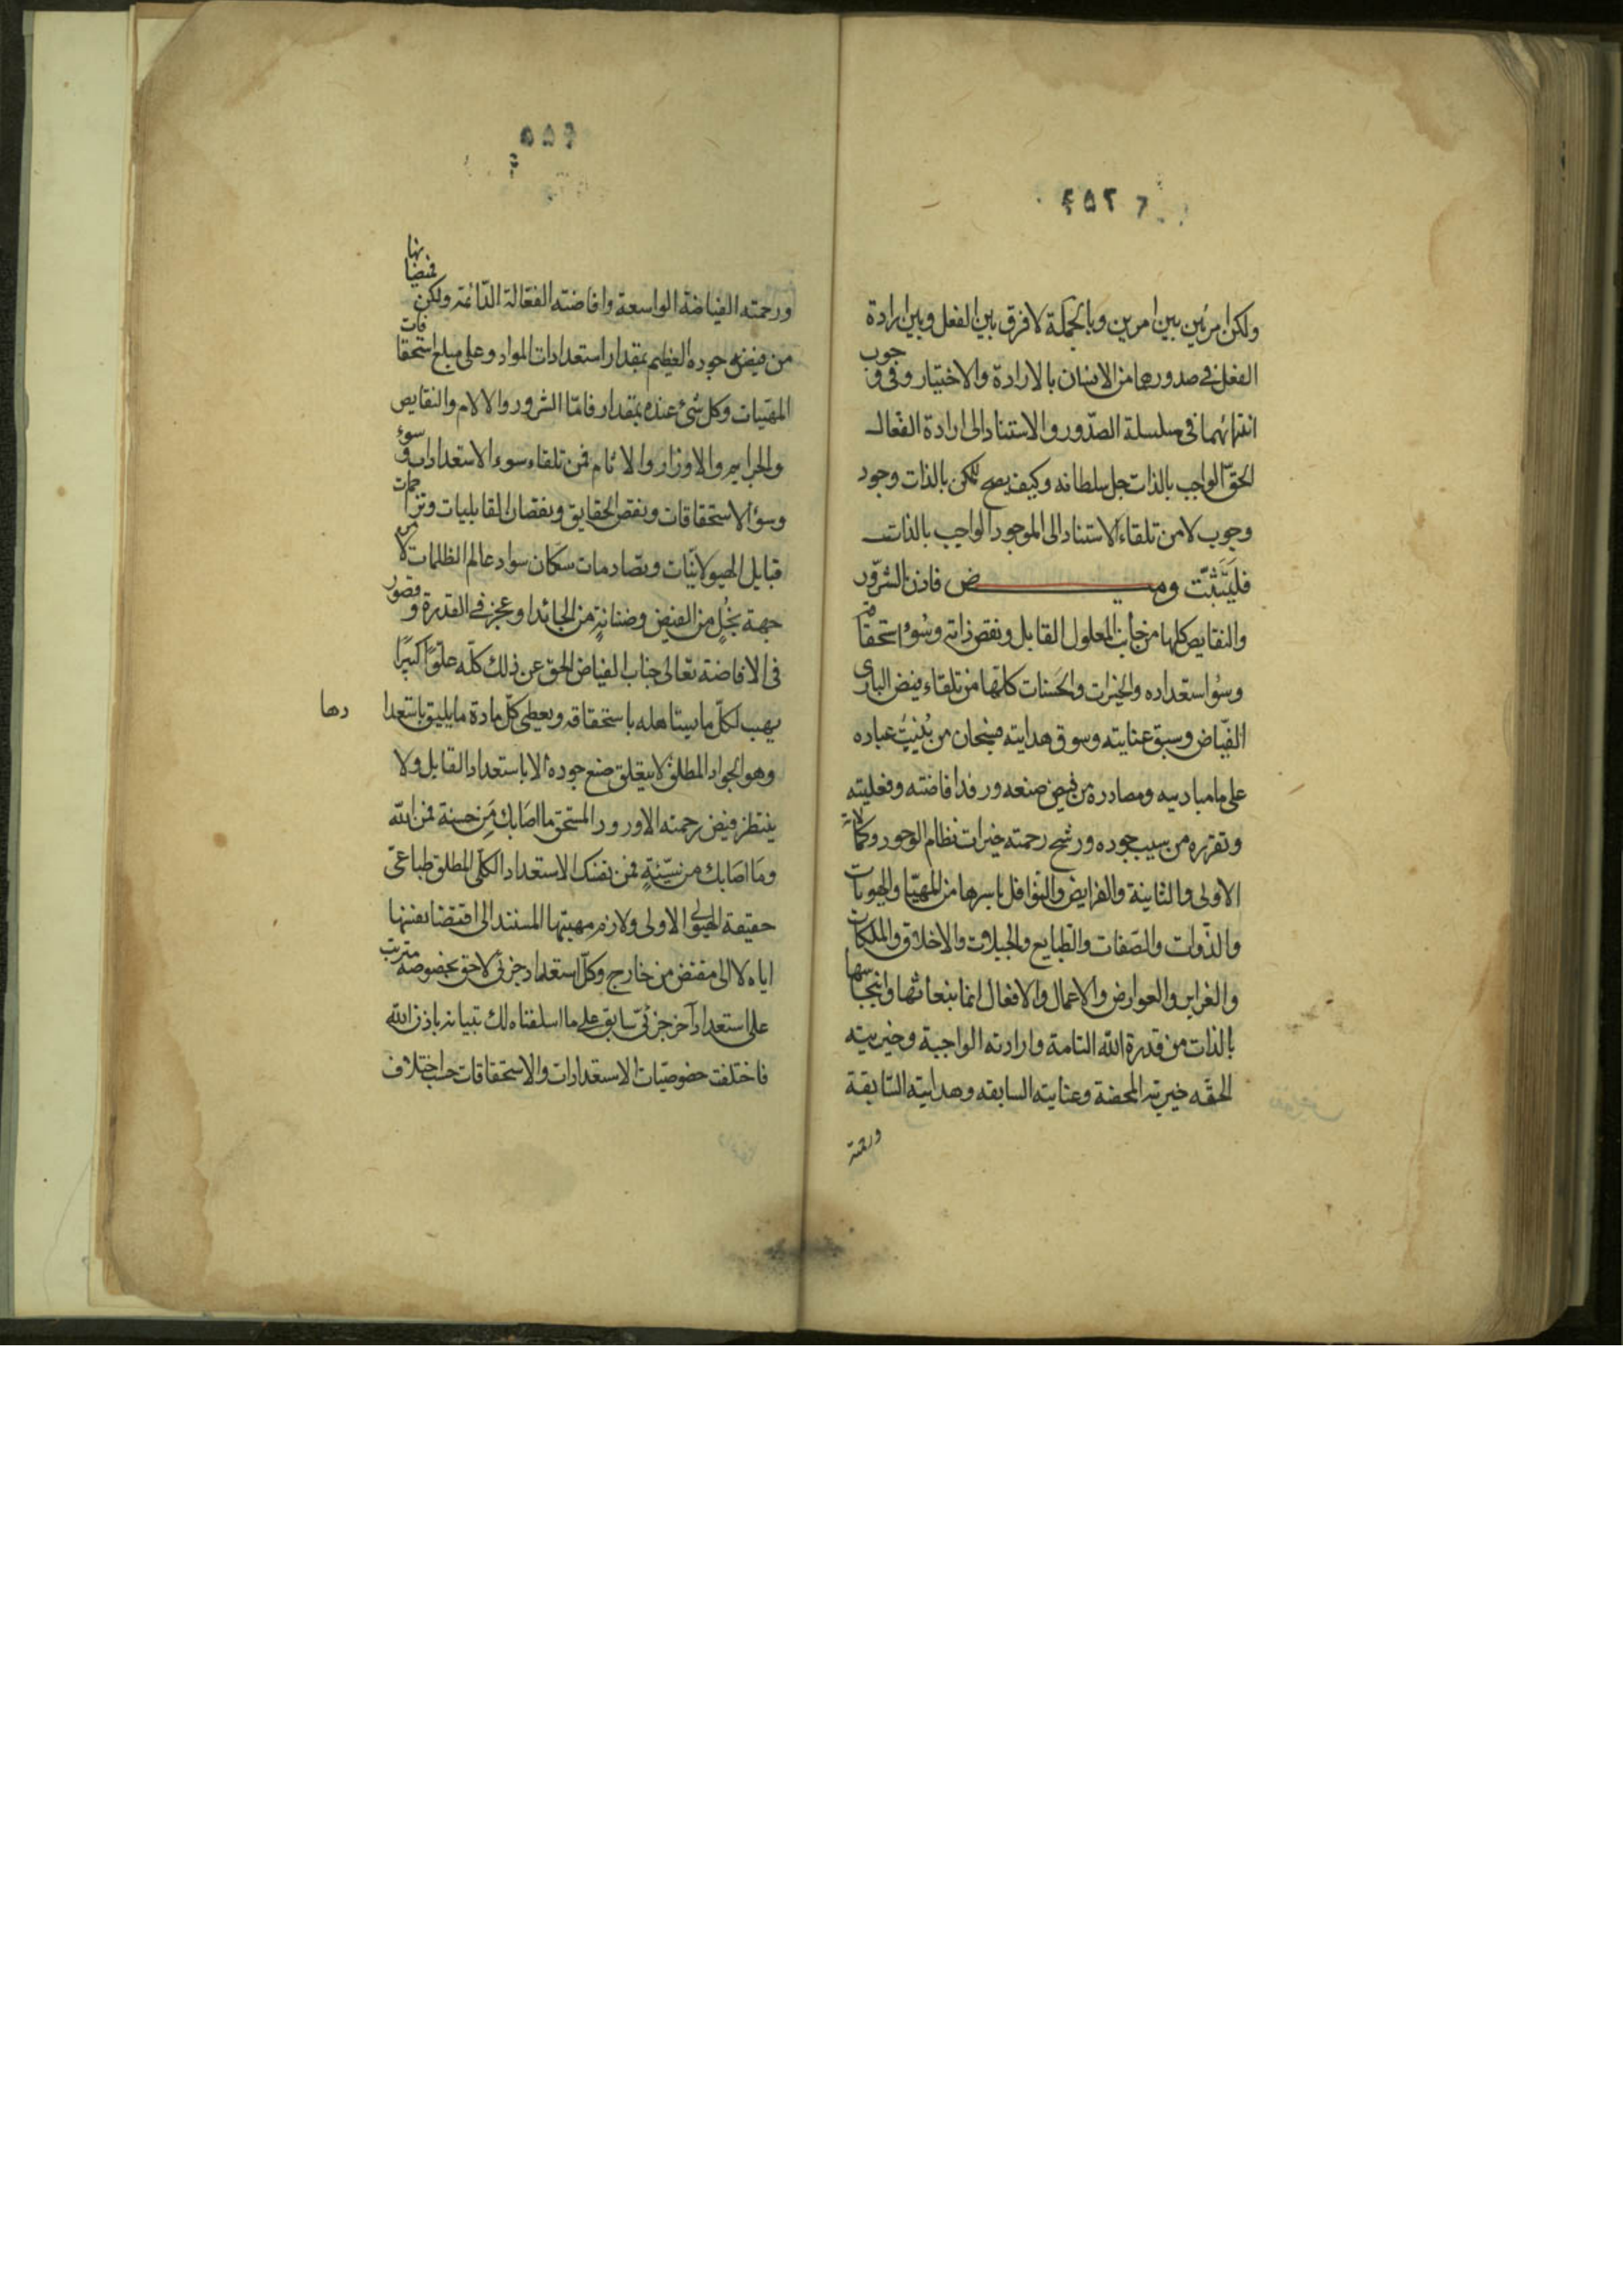 ولكن امر بين بين امرين وبالجملة لا فرق بين الفعل وبين ارادة
الفعل فى صدورهما من الانسان بالارادة والاختيار وفى وجوب
انتهائهما فى سلسلة الصدور والاستناد الى ارادة الفعال
الحق الواجب بالذات جل سلطانه وكيف يصح للممكن بالذات وجود
وجوب لا من تلقاء الاستناد الى الموجود الواجب بالذات
فليتثبت وميض فاذن الشرور
والنقايص كلها من جانب المعلول القابل ونقص ذاته وسوء استحقاقه
وسوء استعداده والخيرات والحسنات كلها من تلقاء فيض البارى
الفياض وسبق عنايته وسوق هدايته فسبحان من عباده
على ما مباديه ومصادره من فيض صنعه ورفد افاضته وفعليته
وتقرره من سيب جوده ورشح رحمته خيرات نظام الوجود وكمالاته
الاولى والثانية والفرايض والنوافل باسرها من المهيات والهويات
والذوات والصفات والطبايع والجبلات والاخلاق والملكات
والغرايز والعوارض والاعمال والافعال انما ينبعاثها وانبجاسها
بالذات من قدرة الله التامة وارادته الواجبة وخيريته
الحقه خيريته المحضة وعنايته السابقه وهدايته السابقة
ورحمته
۴۵۵
ورحمته الفياضة الواسعة وافاضته الفعالة الدائمة ولكن فيضانها
من فيض جوده العظيم بمقدار استعدادات المواد وعلى مبلغ استحقاقات
المهيات وكل شىء عنده بمقدار فاما الشرور والالام والنقايص
والجرايم والاوزار والاثام فمن تلقاء سوء الاستعدادات و سوء
وسوء الاستحقاقات ونقص الحقايق ونقصان القابليات وتزاحمات
قبايل الهيولانيات وتصادمات سكان سواد عالم الظلمات لا من
جهة بخل من الفيض وضنانة من الجائد او عجز فى القدرة وقصور
فى الافاضة تعالى جناب الفياض الحق عن ذلك كله علوا كبيرا
يهب لكل ما يستاهله باستحقاقه ويعطى كل مادة ما يليق باستعدادها
وهو الجواد المطلق لا يتعلق صنع جوده الا باستعداد القابل ولا
ينتظر فيض رحمته الا ورود المستحق ما اصابك من حسنة فمن الله
وما اصابك من سيئة فمن نفسك الاستعداد الكلى المطلق طباعى
حقيقة الهيولى الاولى ولازم مهيتها المستند الى اقتضا نفسها
اياه لا الى مقتض من خارج وكل استعداد جزئى لاحق بخصوصه مترتب
على استعداد آخر جزئى سابق على ما اسلفناه لك تبيانه باذن الله
فاختلفت خصوصيات الاستعدادات والاستحقاقات حسب اختلاف